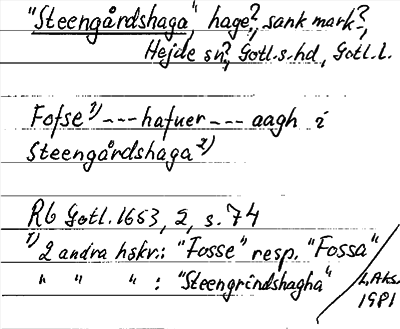 "Steengårdshaga", hage?, sank mark?,
Hejde sn?, Gotl.s.hd, Gotl.l.
Fofse¹⁾ --- hafuer --- aagh i
Steengårdshaga²⁾
Rb Gotl. 1653, 2, s. 74
¹⁾ 2 andra hskr.: "Fosse" resp. "Fossa"
" " " : "Steengrindshagha"
L.Aks.
1981